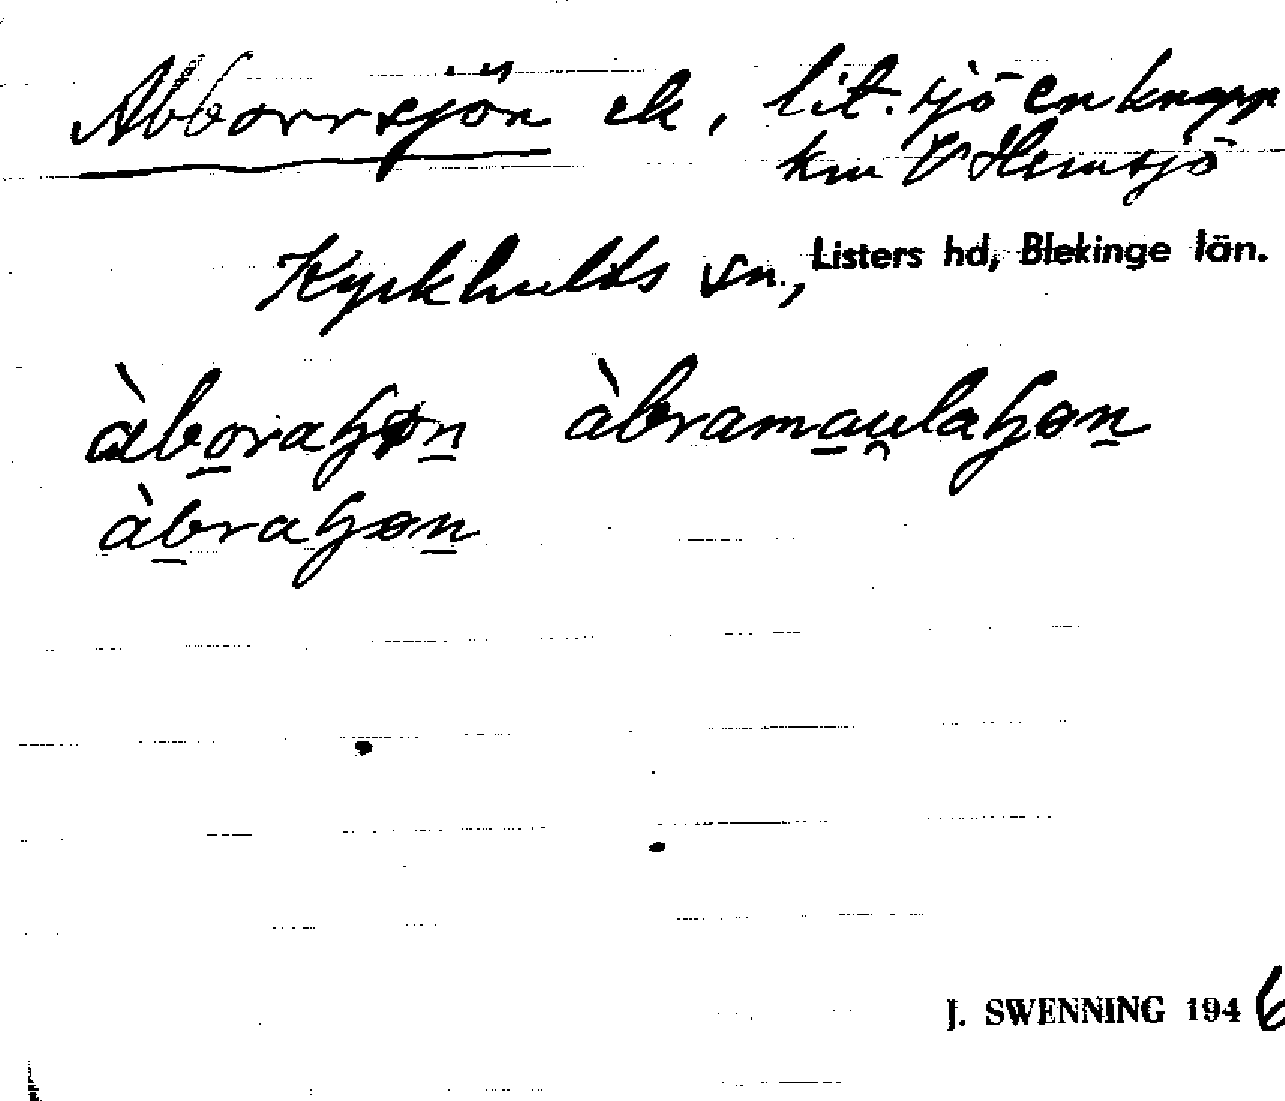 Abborrsjön ek, lit. sjö en knapp
km V Hemsjö
Kyrkhults sn., Listers hd, Blekinge län.
àboraɧøn àbramau̯laɧøn
àbraɧøn
J. SWENNING 1946